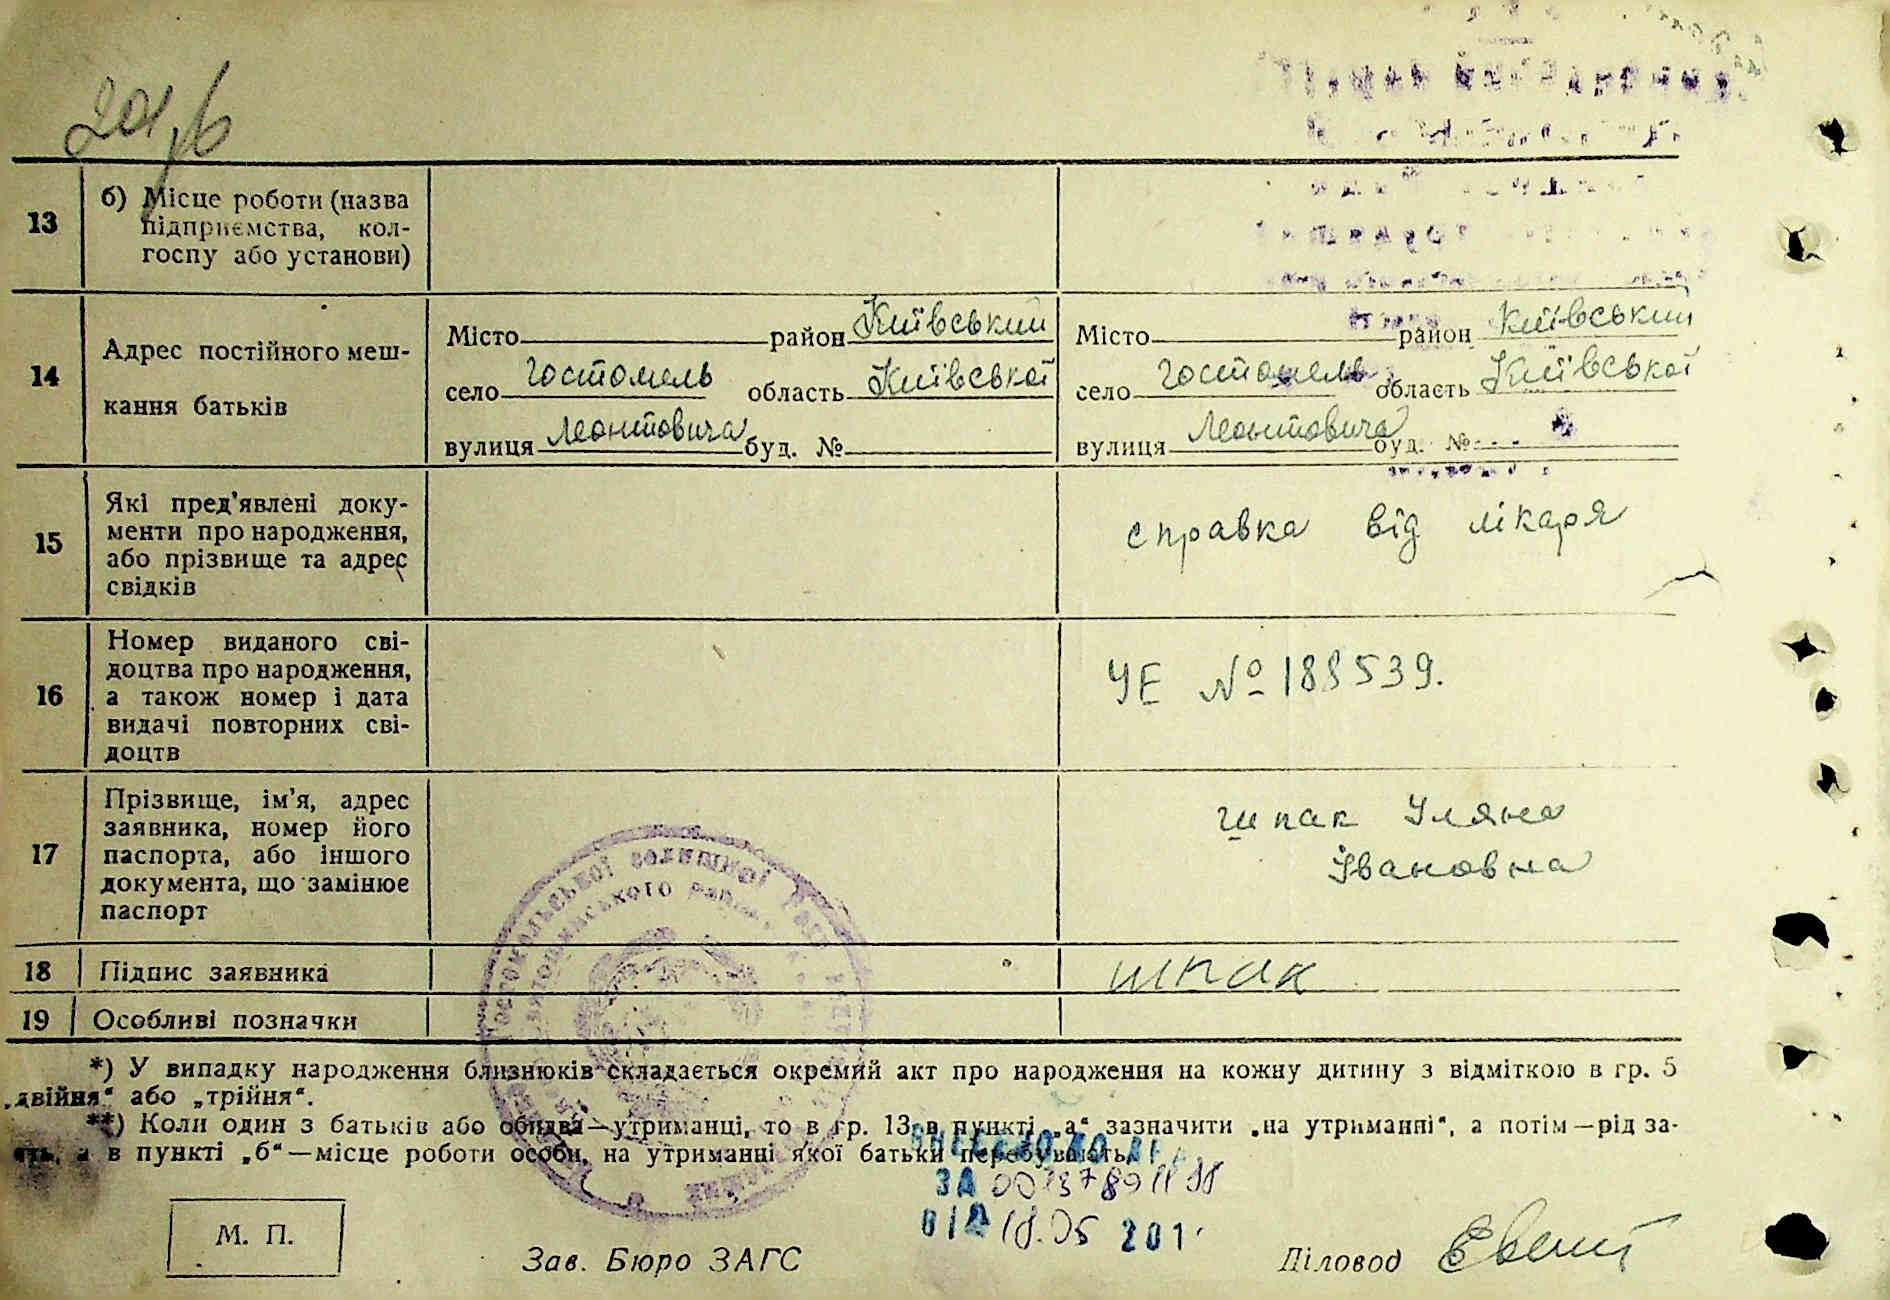 13
б) Місце роботи (назва
підприємства, кол-
госпу або установи)
14
Адрес постійного меш-
кання батьків
Місто район Київський
село Гостомель область Київської
вулиця Леонтовича буд. №
Місто район Київський
село Гостомель область Київської
вулиця Леонтовича буд. №
15
Які пред'явлені доку-
менти про народження,
або прізвище та адрес
свідків
справка від лікаря
16
Номер виданого сві-
доцтва про народження,
а також номер і дата
видачі повторних сві-
доцтв
УЕ № 188539.
17
Прізвище, ім'я, адрес
заявника, номер його
паспорта, або іншого
документа, що замінює
паспорт
Шпак Уляна
Івановна
18
Підпис заявника
шпак
19
Особливі позначки
*) У випадку народження близнюків складається окремий акт про народження на кожну дитину з відміткою в гр. 5
„двійня“ або „трійня“.
**) Коли один з батьків або обидва—утриманці, то в гр. 13 в пункті „а“ зазначити „на утриманні“, а потім—рід за-
нять, а в пункті „б“—місце роботи особи, на утриманні якої батьки перебувають.
ЗА
ВІД 18.05 201
М. П.
Зав. Бюро ЗАГС
Діловод